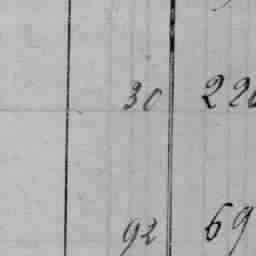 30 220
92 69